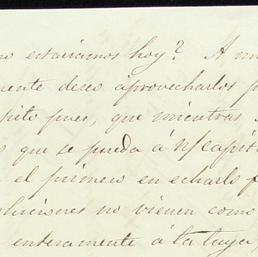 estaríamos hoy? A
mente deseo aprovecharlos
pues, que mientras
que se pueda á
el primero en echarlo
no vienen como
enteramente á la tuya,